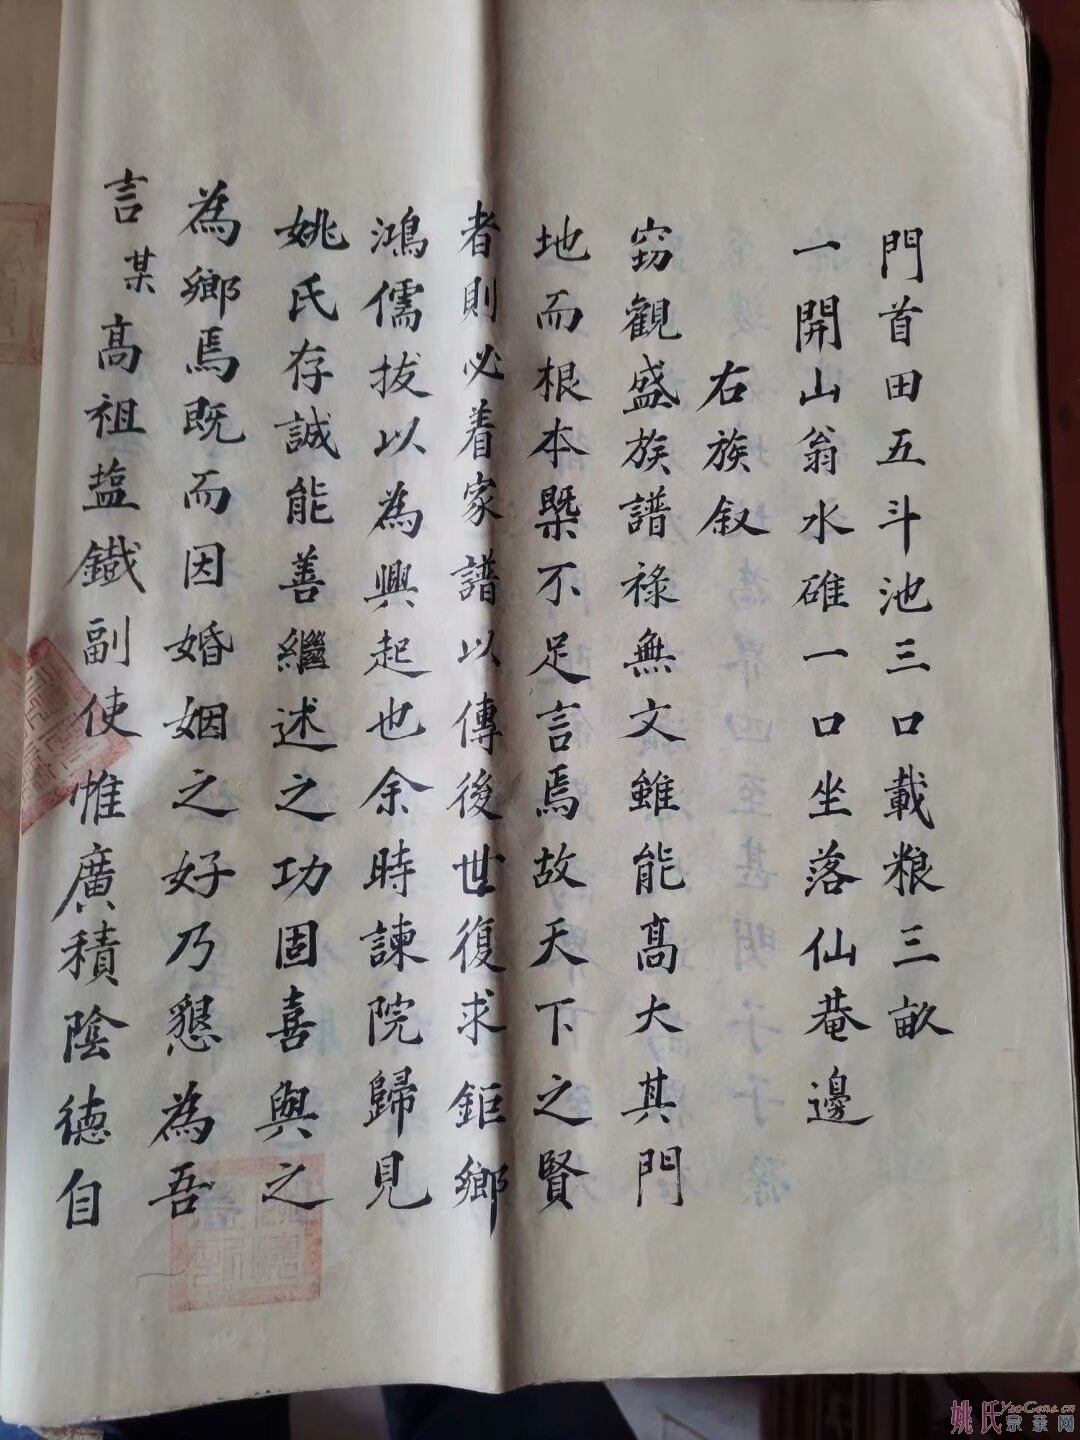 門首田五斗池三口載粮三畝
一開山翁水碓一口坐落仙菴邊
右族叙
窃觀盛族譜祿無文雖能高大其門
地而根本槩不足言焉故天下之賢
者則必着家譜以傳後世復求鉅鄉
鴻儒拔以為興起也余時諫院歸見
姚氏存誠能善繼述之功固喜與之
為鄉焉既而因婚姻之好乃懇為吾
言某高祖塩鐵副使惟廣積陰德自
姚氏宗亲网
YaoGens.cn